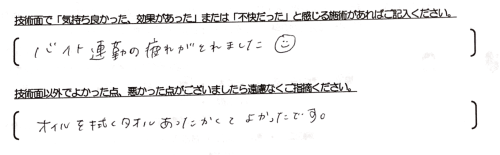 技術面で「気持ち良かった、効果があった」または「不快だった」と感じる施術があればご記入ください。
バイト連勤の疲れがとれました☺
技術面以外でよかった点、悪かった点がございましたら遠慮なくご指摘ください。
オイルを拭くタオルあったかくてよかったです。